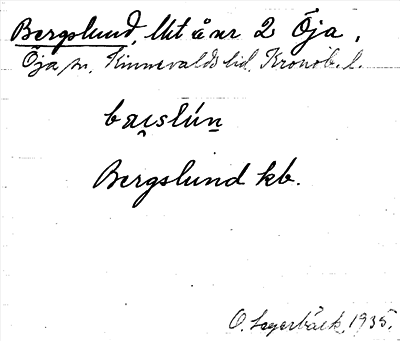 Bergslund, lht å nr 2 Öja.
Öja sn, Kinnevalds hd, Kronob. l.
bæɪslún
Bergslund kb.
O. Lagerbäck 1935.